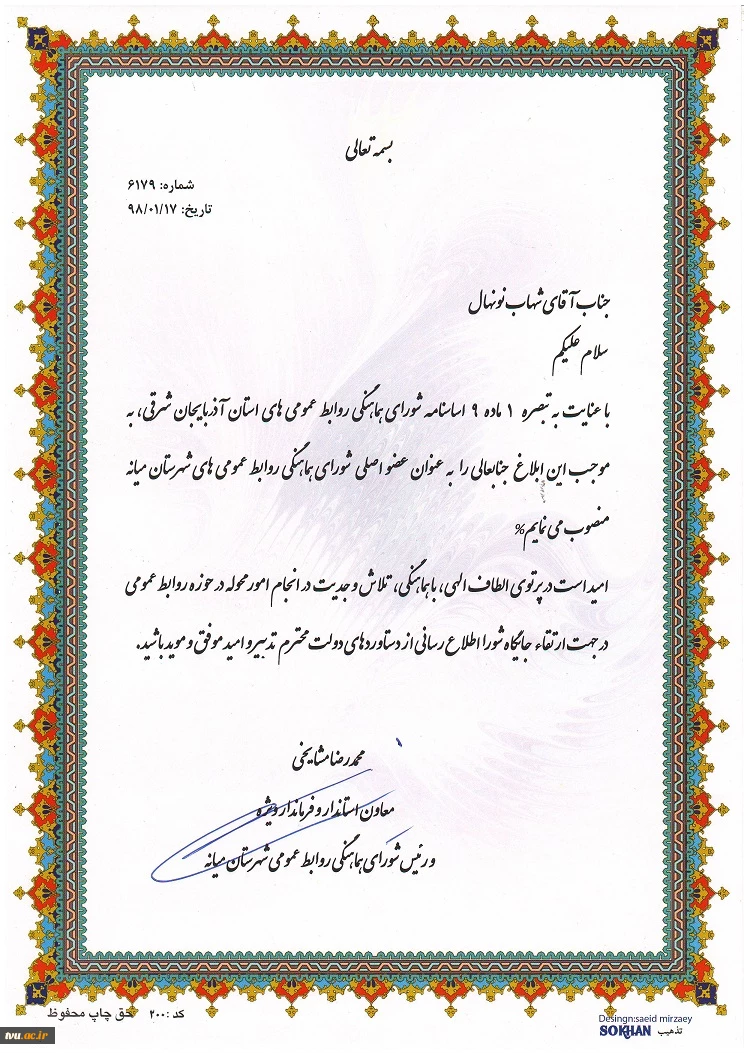 بسمه تعالی
شماره: ۶۱۷۹
تاریخ: ۹۸/۰۱/۱۷
جناب آقای شهاب نونهال
سلام علیکم
با عنایت به تبصره ۱ ماده ۹ اساسنامه شورای هماهنگی روابط عمومی های استان آذربایجان شرقی، به
موجب این ابلاغ جنابعالی را به عنوان عضو اصلی شورای هماهنگی روابط عمومی های شهرستان میانه
منصوب می نمایم%
امید است در پرتوی الطاف الهی، با هماهنگی، تلاش و جدیت در انجام امور محوله در حوزه روابط عمومی
در جهت ارتقاء جایگاه شورا اطلاع رسانی از دستاوردهای دولت محترم تدبیر و امید موفق و موید باشید.
محمدرضا مشایخی
معاون استاندار و فرماندار ویژه
و رئیس شورای هماهنگی روابط عمومی شهرستان میانه
کد :۲۰۰ حق چاپ محفوظ
Desingn:saeid mirzaey
تذهیب SOKHAN
tvu.ac.ir